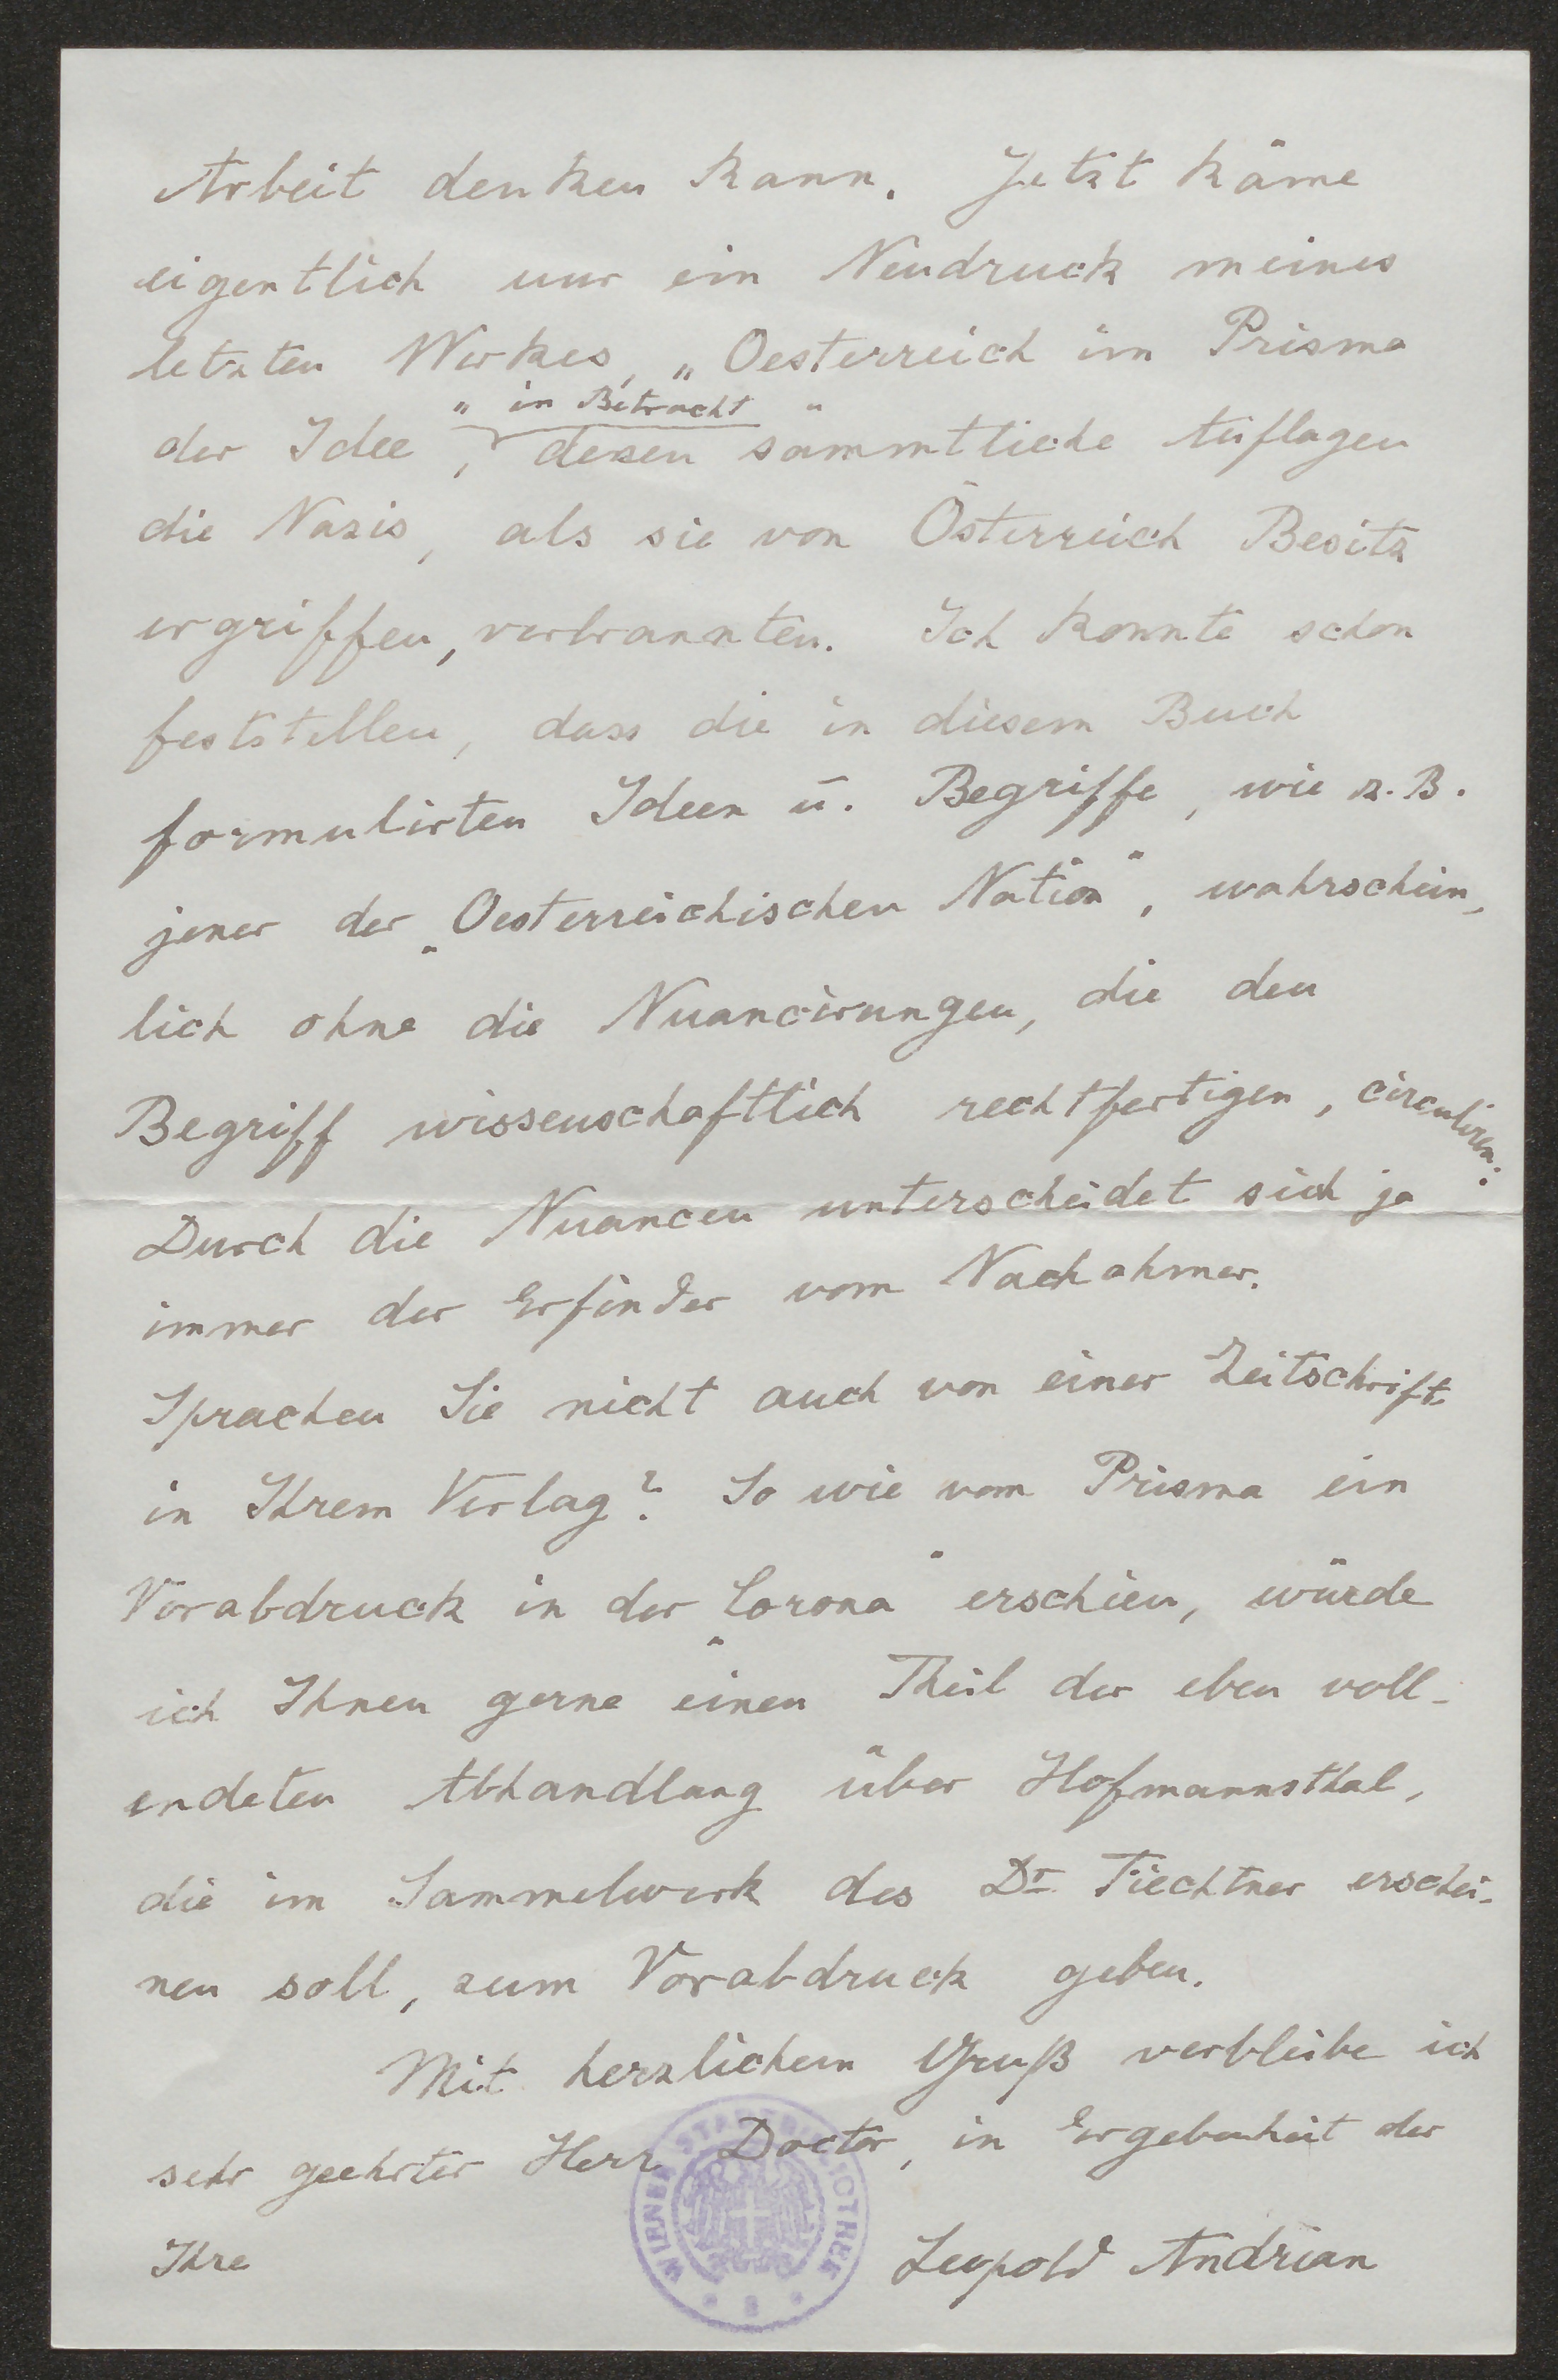 Arbeit denken kann. Jetzt käme
eigentlich nur ein Neudruck meines
letzten Werkes, „Oesterreich im Prisma
der Idee" in Betracht, dessen sämmtliche Auflagen
die Nazis, als sie von Österreich Besitz
ergriffen, verbrannten. Ich konnte schon
feststellen, dass die in diesem Buch
formulirten Ideen u. Begriffe, wie z. B.
jener der „Oesterreichischen Nation", wahrschein-
lich ohne die Nuancirungen, die den
Begriff wissenschaftlich rechtfertigen, circuliren:
Durch die Nuancen unterscheidet sich ja
immer der Erfinder vom Nachahmer.
Sprachen Sie nicht auch von einer Zeitschrift
in Ihrem Verlag? So wie vom Prisma ein
Vorabdruck in der „Corona" erschien, würde
ich Ihnen gerne einen Theil der eben voll-
endeten Abhandlung über Hofmannsthal,
die im Sammelwerk des Dr. Fiechtner erschei-
nen soll, zum Vorabdruck geben.
Mit herzlichem Gruß verbleibe ich
sehr geehrter Herr Doctor, in Ergebenheit der
Ihre Leopold Andrian
WIENER STADTBIBLIOTHEK